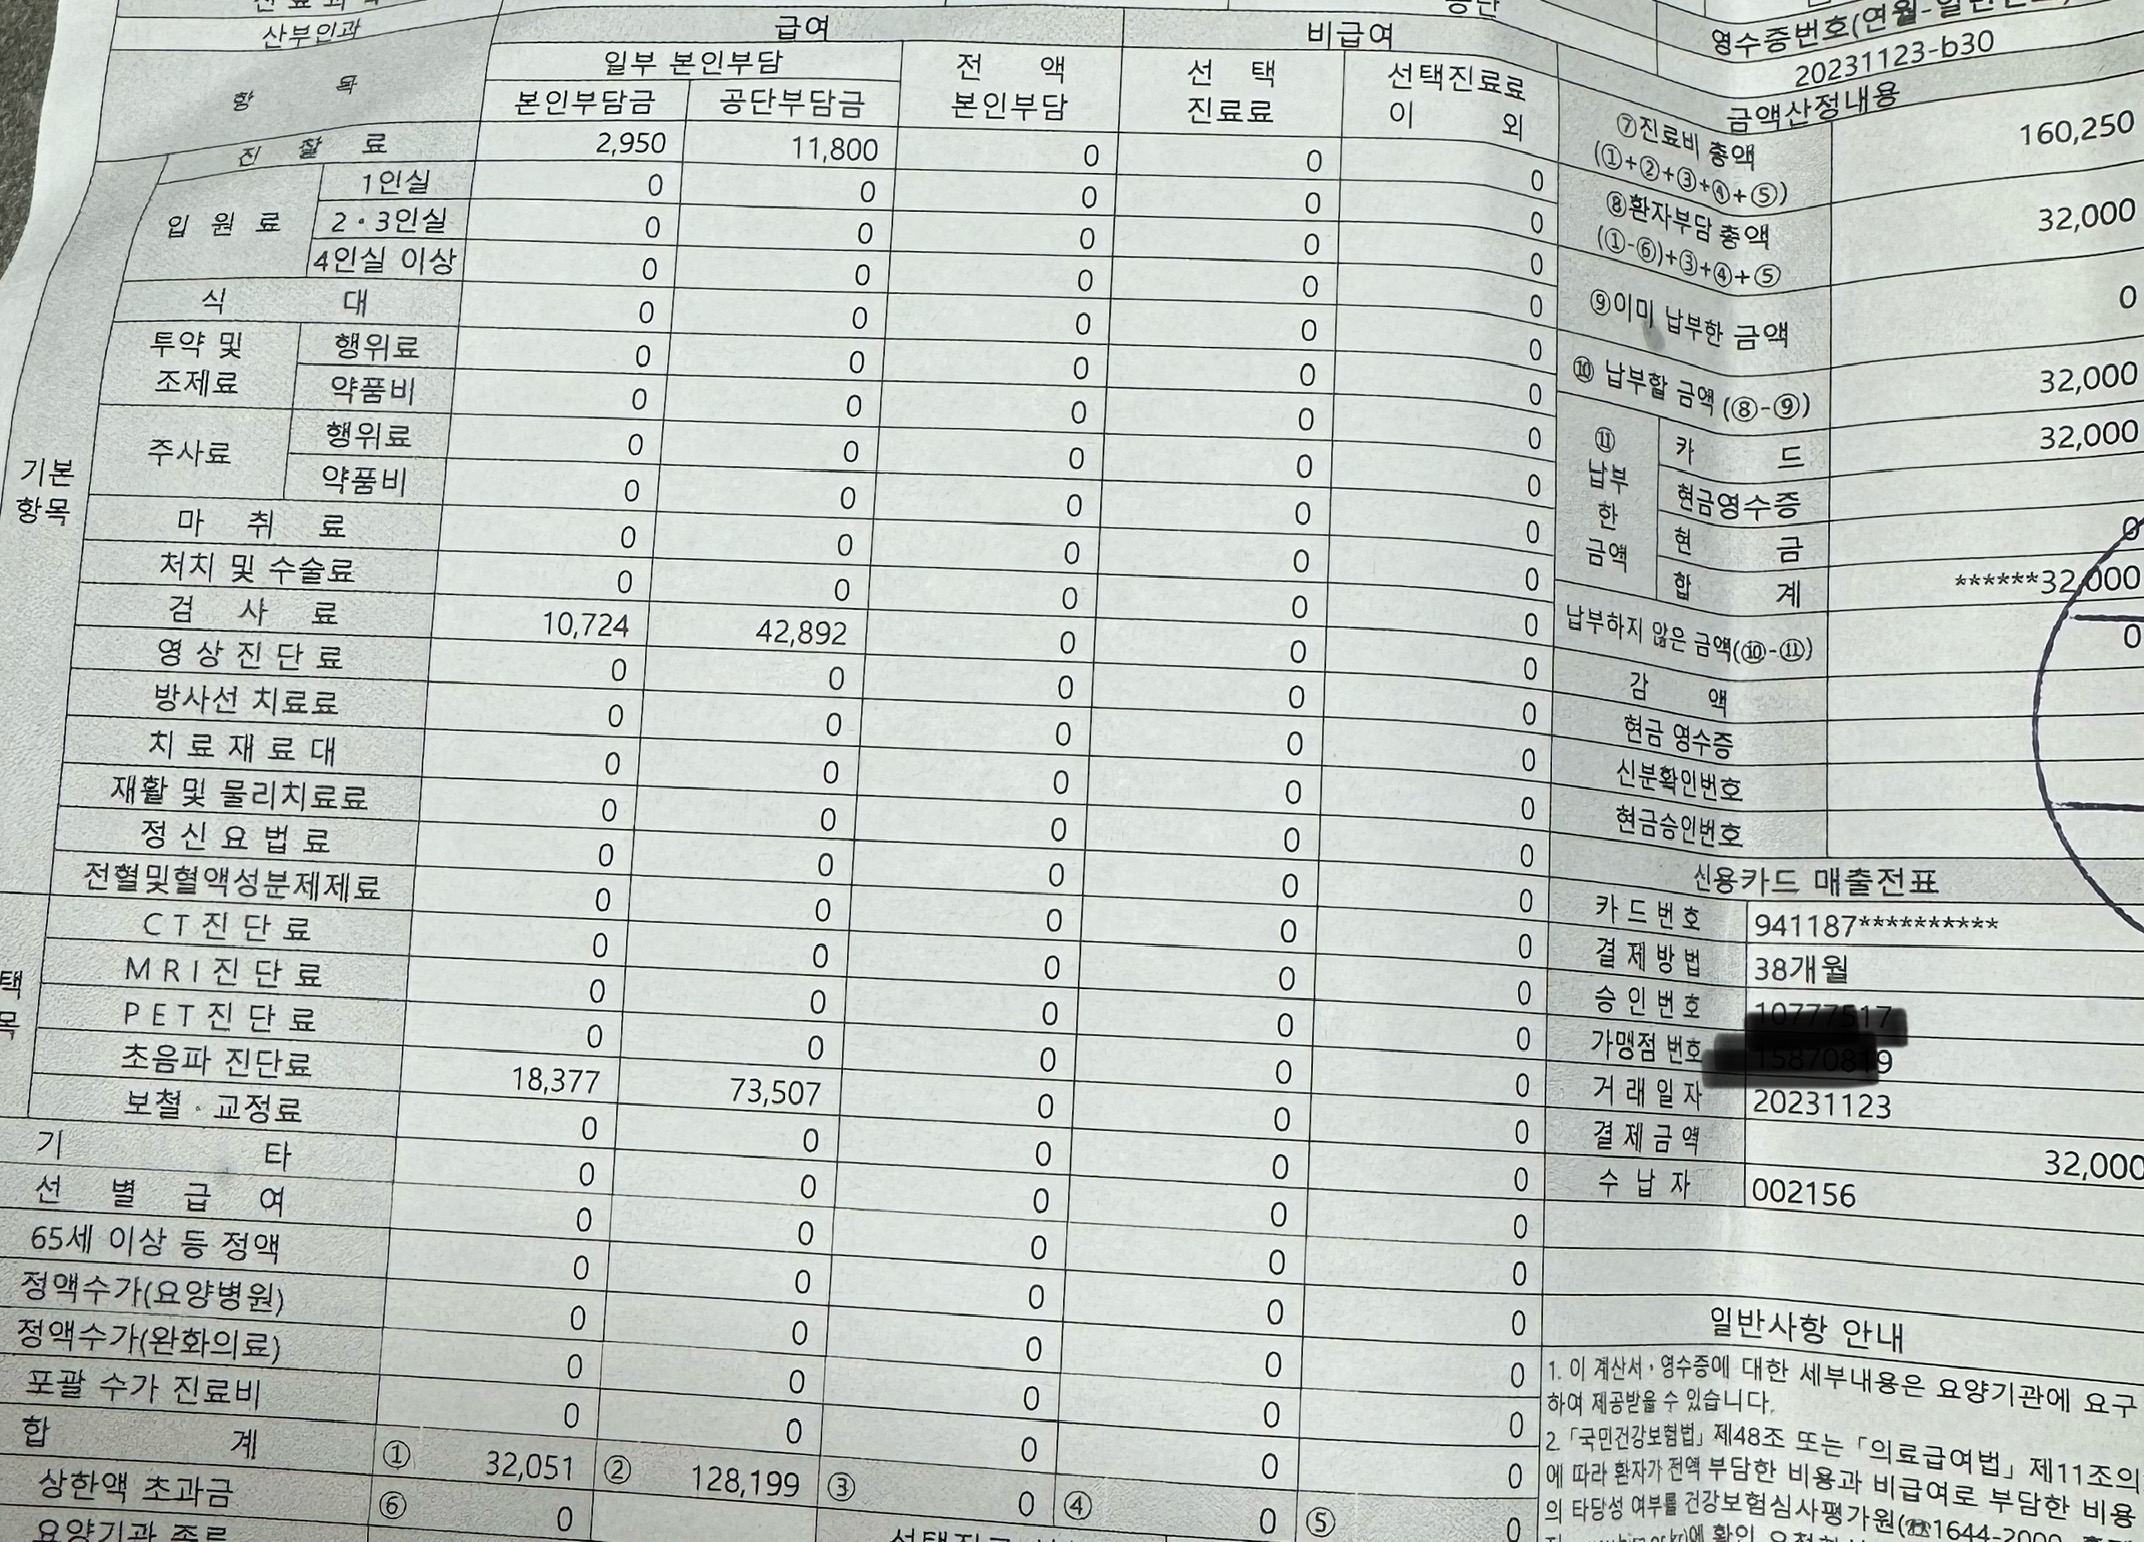 산부인과
급여
비급여
영수증번호
20231123-b30
항 목
일부 본인부담
전 액
본인부담
선 택
진료료
선택진료료
이 외
본인부담금 공단부담금
금액산정내용
진 찰 료 2,950 11,800 0 0 0
입 원 료
1인실 0 0 0 0 0
2·3인실 0 0 0 0 0
4인실 이상 0 0 0 0 0
식 대 0 0 0 0 0
투약 및
조제료
행위료 0 0 0 0 0
약품비 0 0 0 0 0
주사료
행위료 0 0 0 0 0
약품비 0 0 0 0 0
기본
항목
마 취 료 0 0 0 0 0
처치 및 수술료 0 0 0 0 0
검 사 료 10,724 42,892 0 0 0
영 상 진 단 료 0 0 0 0 0
방사선 치료료 0 0 0 0 0
치 료 재 료 대 0 0 0 0 0
재활 및 물리치료료 0 0 0 0 0
정 신 요 법 료 0 0 0 0 0
전혈및혈액성분제제료 0 0 0 0 0
택
목
C T 진 단 료 0 0 0 0 0
M R I 진 단 료 0 0 0 0 0
P E T 진 단 료 0 0 0 0 0
초음파 진단료 18,377 73,507 0 0 0
보철·교정료 0 0 0 0 0
기 타 0 0 0 0 0
선 별 급 여 0 0 0 0 0
65세 이상 등 정액 0 0 0 0 0
정액수가(요양병원) 0 0 0 0 0
정액수가(완화의료) 0 0 0 0 0
포괄 수가 진료비 0 0 0 0 0
합 계 ① 32,051 ② 128,199 ③ 0 ④ 0 ⑤ 0
상한액 초과금 ⑥ 0
요양기관 종류
⑦진료비 총액 160,250
(①+②+③+④+⑤)
⑧환자부담 총액 32,000
(①-⑥)+③+④+⑤
⑨이미 납부한 금액 0
⑩ 납부할 금액 (⑧-⑨) 32,000
⑪
납부
한
금액
카 드 32,000
현금영수증
현 금 0
합 계 ******32,000
납부하지 않은 금액(⑩-⑪) 0
감 액
현금 영수증
신분확인번호
현금승인번호
신용카드 매출전표
카 드 번 호 941187**********
결 제 방 법 38개월
승 인 번 호
가맹점 번호
거 래 일 자 20231123
결 제 금 액 32,000
수 납 자 002156
일반사항 안내
1. 이 계산서·영수증에 대한 세부내용은 요양기관에 요구
하여 제공받을 수 있습니다.
2.「국민건강보험법」제48조 또는「의료급여법」제11조의
에 따라 환자가 전액 부담한 비용과 비급여로 부담한 비용
의 타당성 여부를 건강보험심사평가원(☎1644-2000